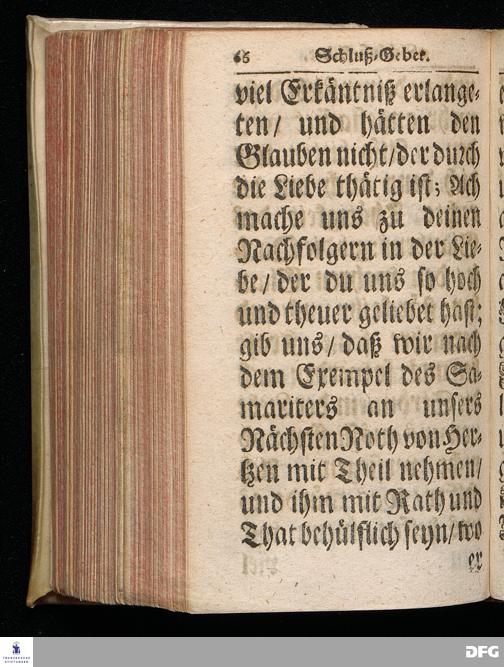 66 Schluß-Gebet.
viel Erkäntniß erlange-
ten/ und hätten den
Glauben nicht/der durch
die Liebe thätig ist; Ach
mache uns zu deinen
Nachfolgern in der Lie-
be/ der du uns so hoch
und theuer geliebet hast;
gib uns/ daß wir nach
dem Exempel des Sa-
mariters an unsers
Nächsten Noth von Her-
tzen mit Theil nehmen/
und ihm mit Rath und
That behülflich seyn/ wo
er
FRANCKESCHE
STIFTUNGEN
DFG